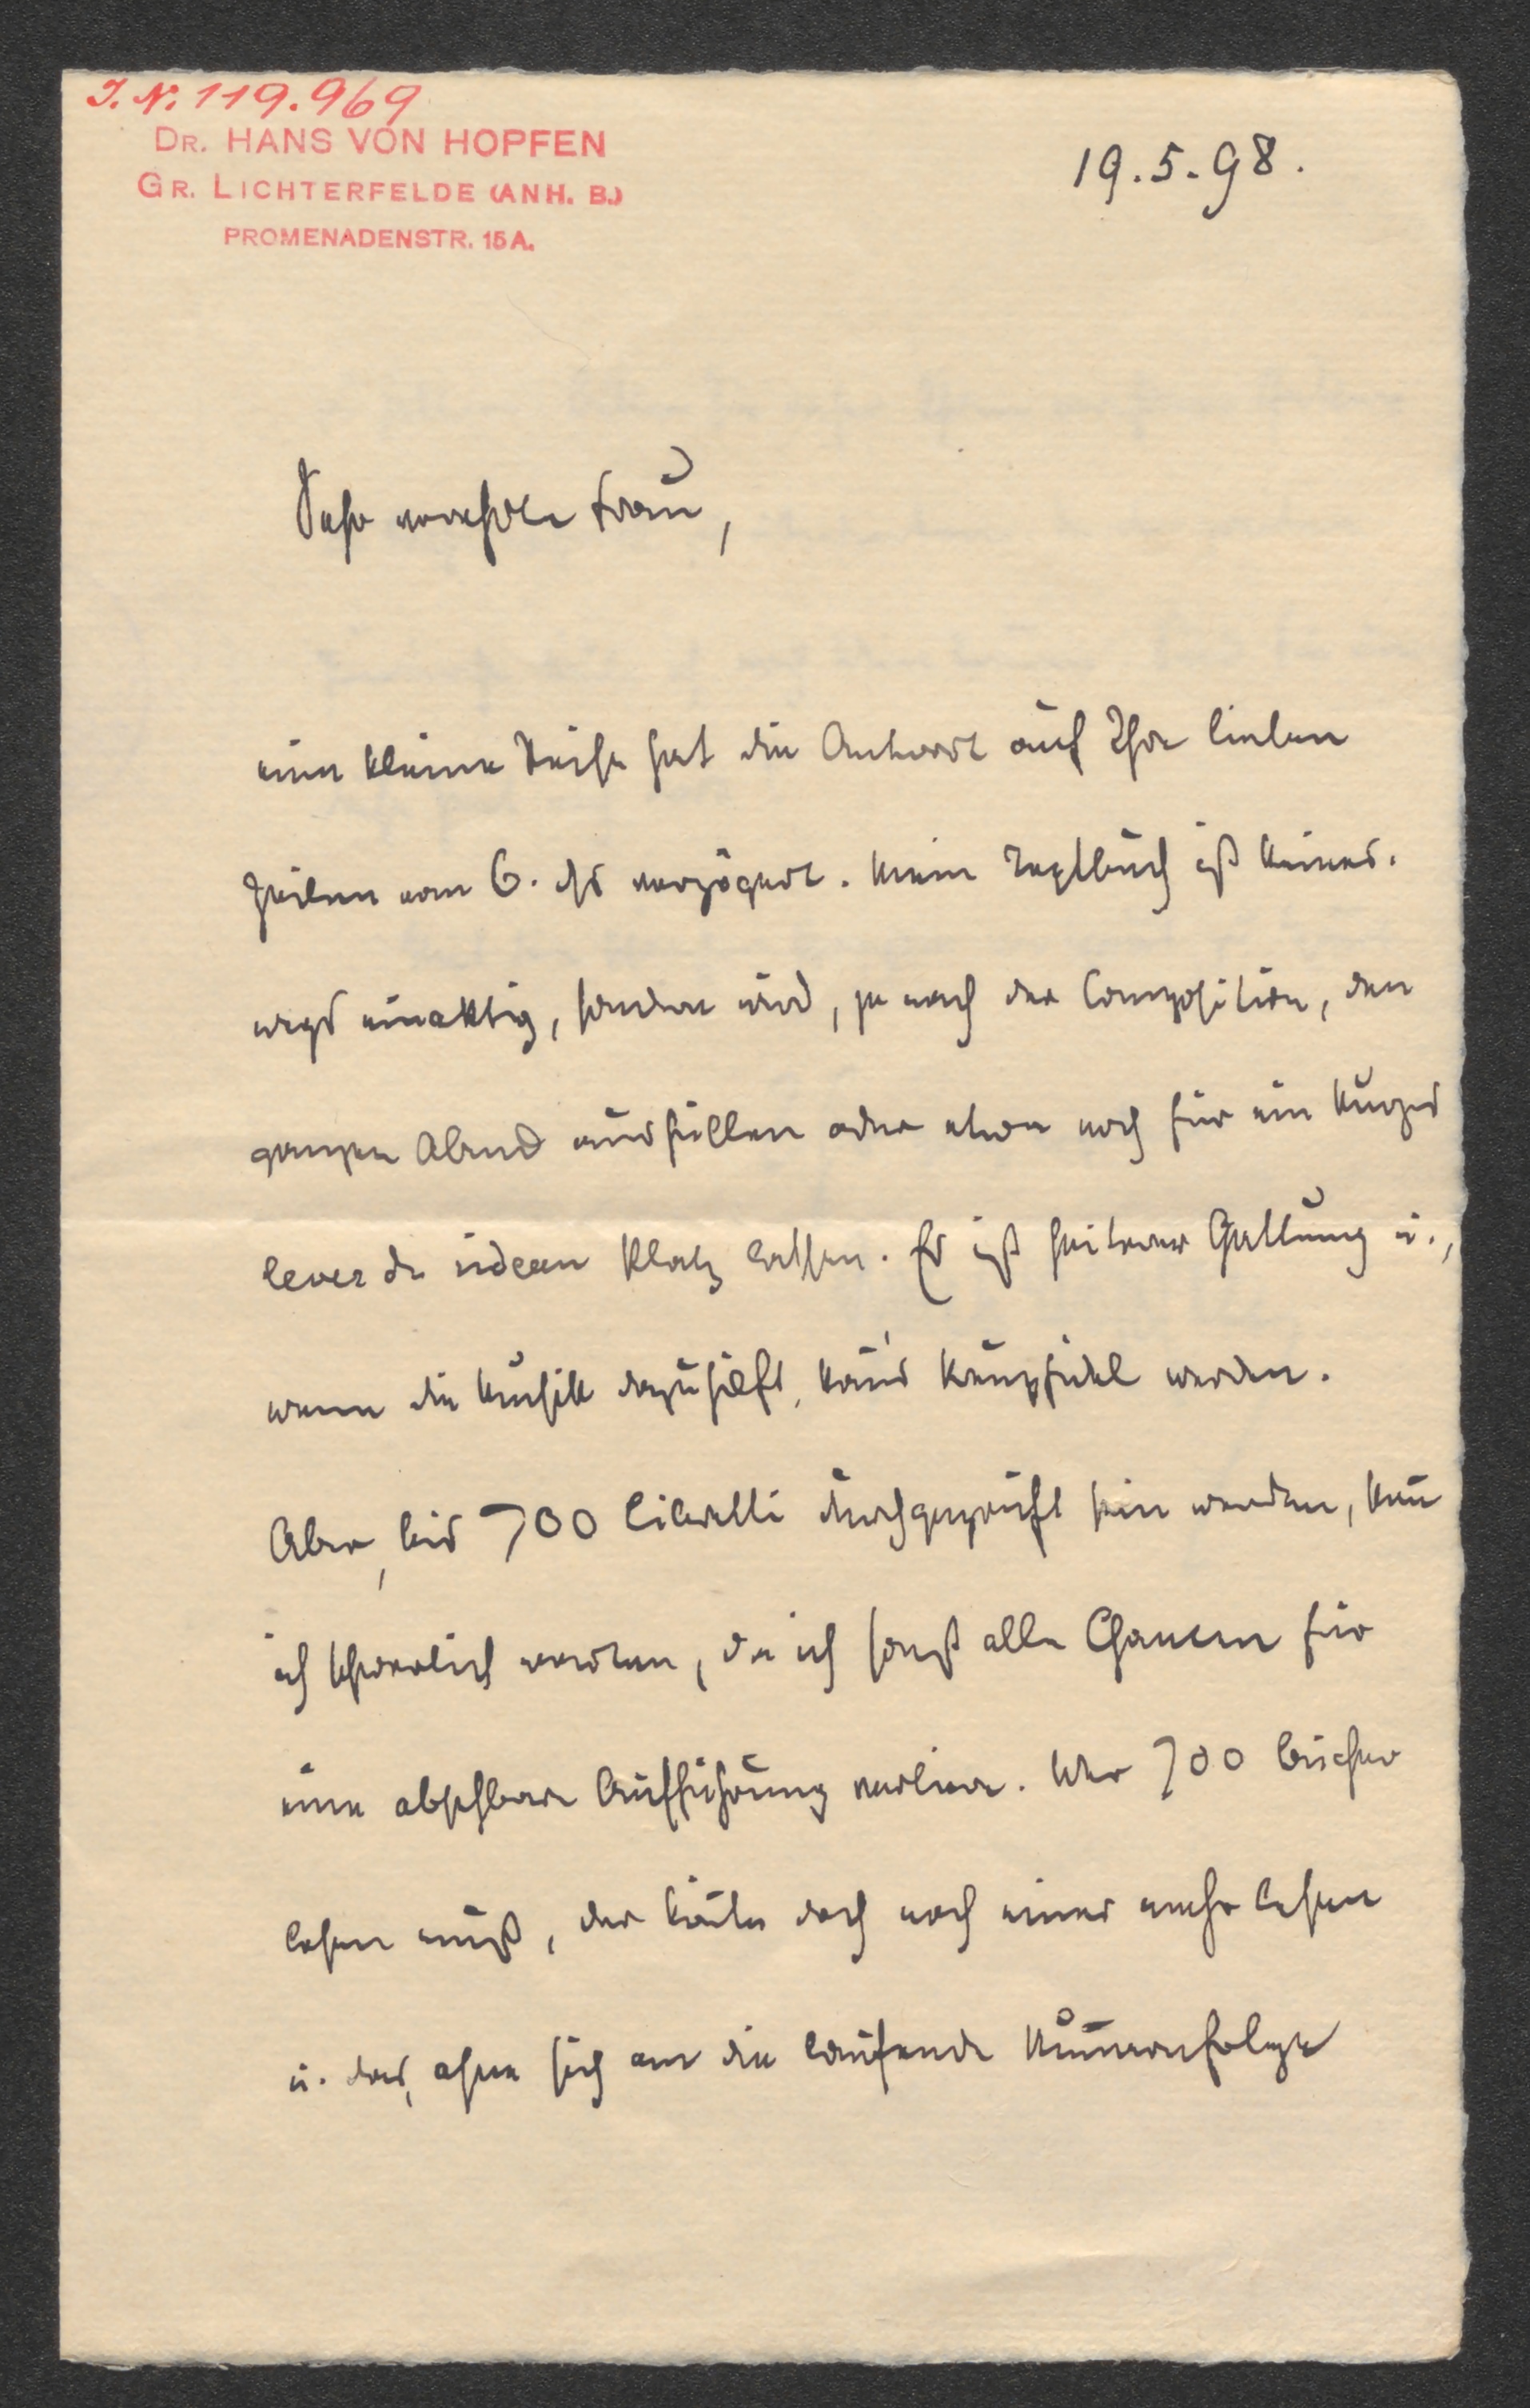 J. N. 119.969
DR. HANS VON HOPFEN
GR. LICHTERFELDE (ANH. B.)
PROMENADENSTR. 15A.
19.5.98.
Sehr verehrte Frau,
eine kleine Reise hat die Antwort auf Ihre lieben
Zeilen vom 6. ds verzögert. Mein Textbuch ist keines-
wegs einaktig, sondern wird, je nach der Composition, den
ganzen Abend ausfüllen oder etwa noch für ein kurzes
lever de rideau Platz lassen. Es ist heiterer Gattung u.,
wenn die Musik dazu hilft, kann's kreuzfidel werden.
Aber, bis 700 Libretti durchgeprüft sein werden, kann
ich schwerlich warten, da ich sonst alle Chancen für
eine absehbare Aufführung verliere. Wer 700 Bücher
lesen muß, der könnte doch noch eines mehr lesen
u. das, ohne sich an die laufende Nummernfolge